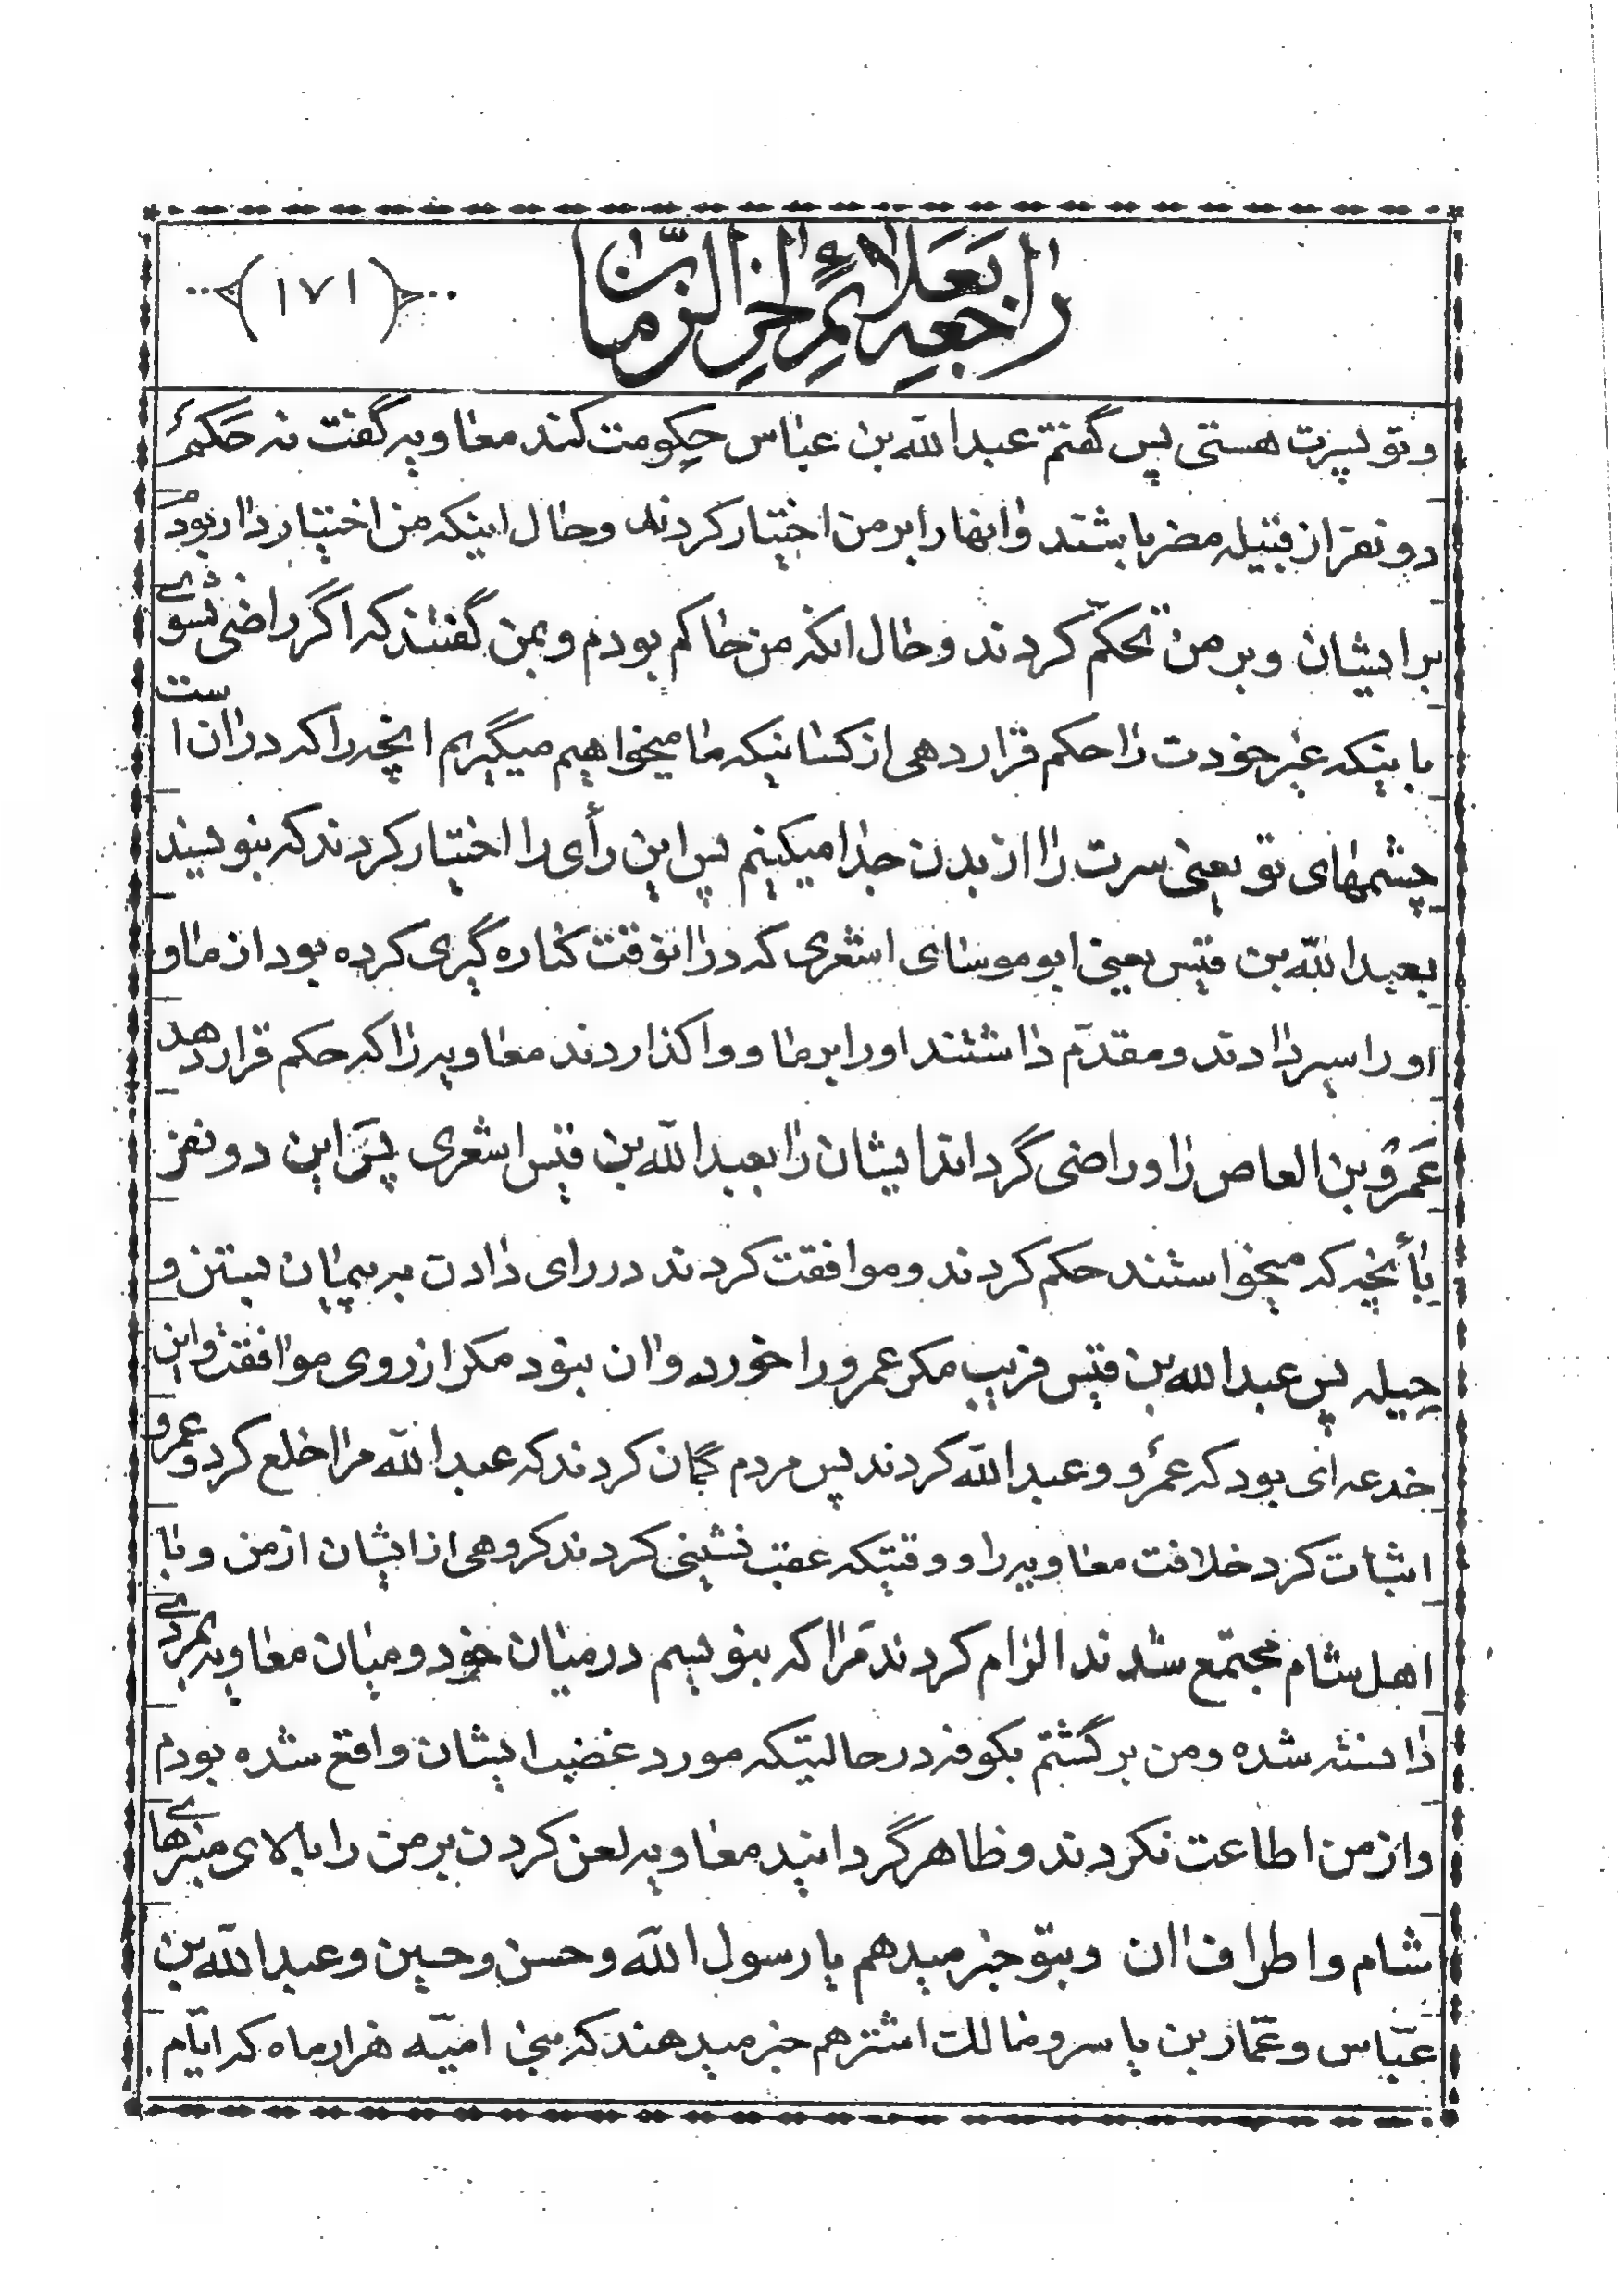 راجعه بعلائم اخر الزمان
(۱۷۱)
و تو بسپرت هستی پس گفتم عبدالله بن عباس حکومت کند معاویه گفت نه حکم
دو نفر از قبیله مضر باشند و انها را بر من اختیار کردند و حال اینکه من اختیار دار بودم
بر ایشان و بر من تحکّم کردند و حال انکه من حاکم بودم و بمن گفتند که اگر راضی نشوی
باینکه غیر خودت را حکم قرار دهی از کسانیکه ما میخواهیم میگیریم انچه را که در ان است
چشمهای تو یعنی سرت را از بدن جدا میکنیم پس این رأی را اختیار کردند که بنویسند
بعبدالله بن قیس یعنی ابو موسای اشعری که در انوقت کناره گیری کرده بود از ما و
او را سیر دادند و مقدّم داشتند او را بر ما و واگذاردند معاویه را که حکم قرار دهد
عَمرو بن العاص را و راضی گرداند ایشان را بعبدالله بن قیس اشعری پس این دو نفر
بأنچه که میخواستند حکم کردند و موافقت کردند در رای دادن به پیمان بستن و
حیله پس عبدالله بن قیس فریب مکر عمرو را خورد و ان نبود مکر از روی موافقت و این
خدعه ای بود که عمرو و عبدالله کردند پس مردم گمان کردند که عبدالله مرا خلع کرد و عمرو
اثبات کرد خلافت معاویه را و وقتیکه عقب نشینی کردند کروهی از ایشان از من و با
اهل شام مجتمع شدند الزام کردند مَرا که بنویسم در میان خود و میان معاویه بمردی
دانسته شده و من برگشتم بکوفه در حالیتکه مورد غضب ایشان واقع شده بودم
و از من اطاعت نکردند و ظاهر گردانید معاویه لعن کردن بر من را بالای منبرهای
شام و اطراف ان و بتو خبر میدهم یا رسول الله و حسن و حسین و عبدالله بن
عبّاس و عمّار بن یاسر و مالک اشتر هم خبر میدهند که بنی امیّه هزار ماه که ایّام